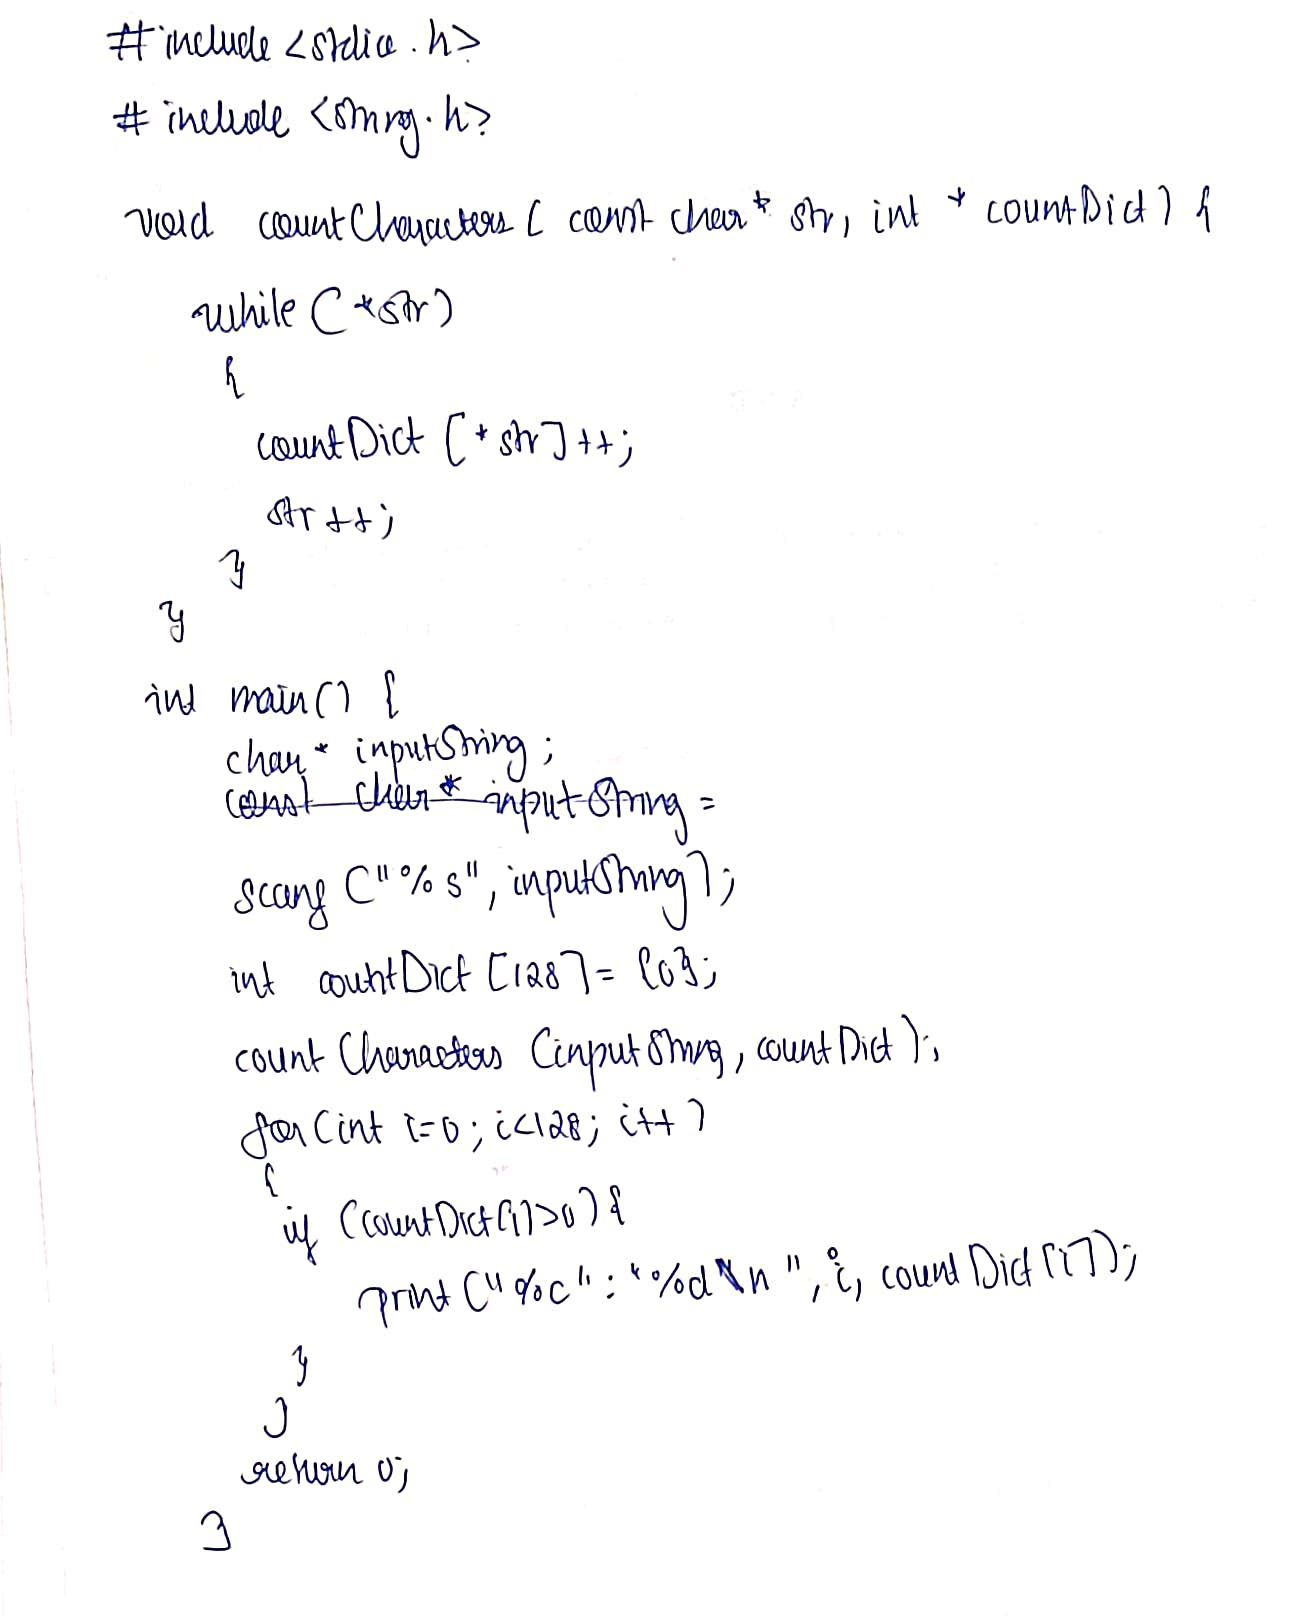 #include <stdio.h>
# include <string.h>
void countCharacters ( const char* str, int * countDict) {
while ( *str)
{
countDict [*str]++;
str ++;
}
}
int main() {
char* inputString ;
const char* inputString =
scanf ("%s", inputString);
int countDict [128] = {0};
count Characters (inputString, countDict );
for (int i=0; i<128; i++ )
{
if (countDict[i]>0) {
print ("%c": "%d\n ", i, count Dict [i]);
}
}
return 0;
}